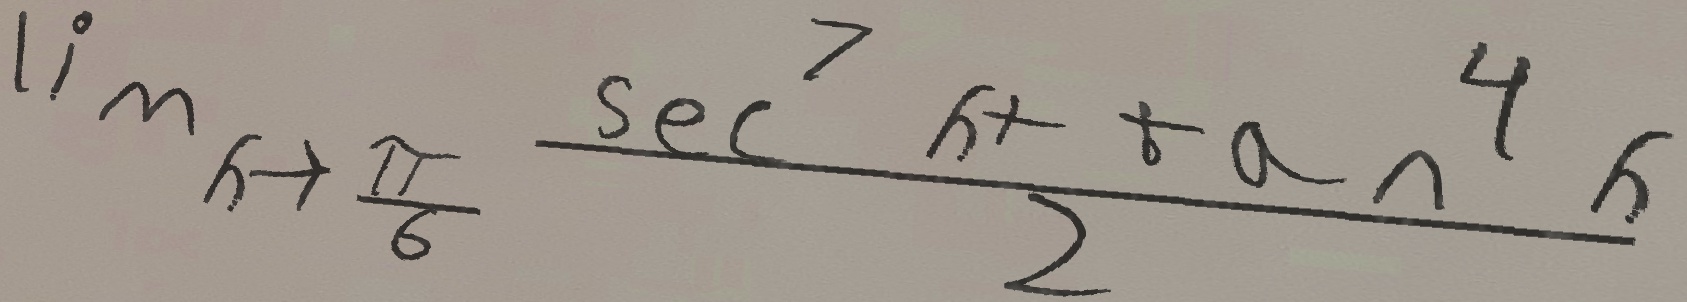 \lim_{h \to \frac{\pi}{6}} \frac{\sec^7 h + \tan^4 h}{2}